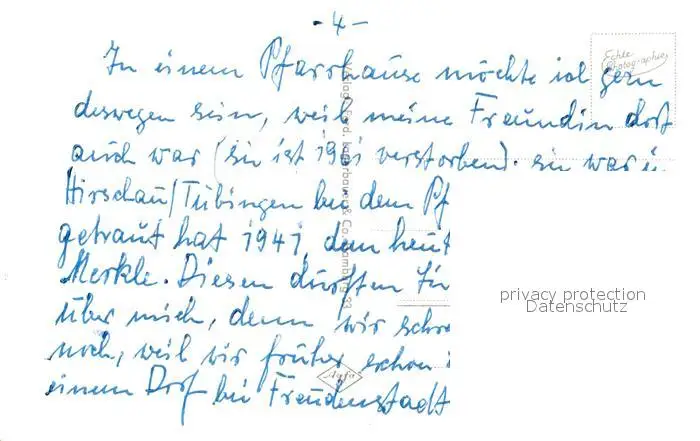 - 4 -
In einem Pfarrhause möchte ich gern
deswegen sein, weil meine Freundin dort
auch war (sie ist 1961 verstorben). sie war i.
Hirschau/Tübingen bei dem Pf
getraut hat 1941, dem heut
Merkle. Diesen dürften
über mich, denn wir schre
noch, weil wir früher schon
einem Dorf bei Freudenstadt
Echte
Photographie
Verlag
Hamburg
Agfa
privacy protection
Datenschutz